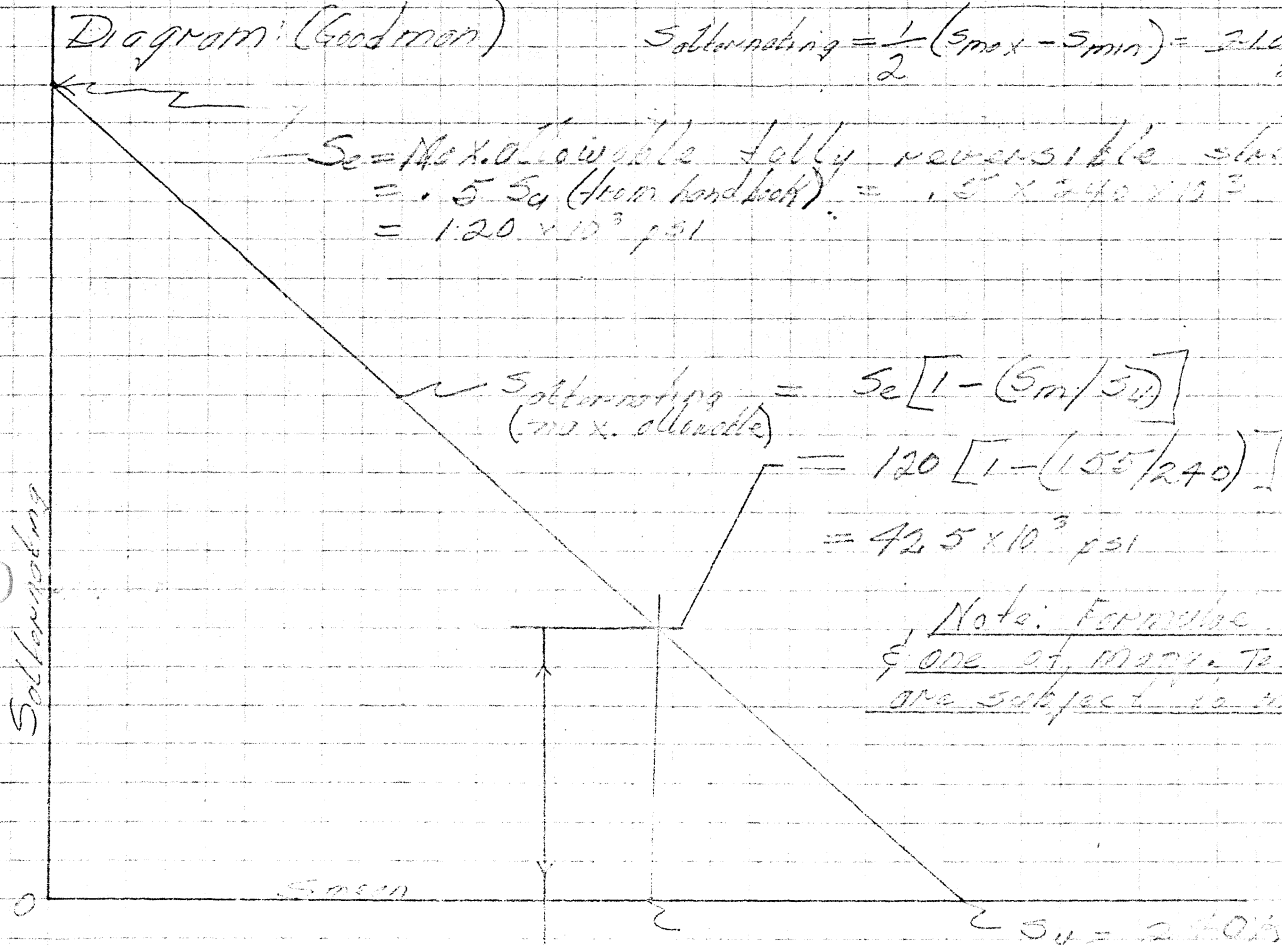 Diagram: (Goodman)
Salternating = 1/2 (Smax - Smin) = 210
Se = Max. allowable fully reversible
= .5 Su (from handbook) = .5 x 240 x 10³
= 120 x 10³ psi
Salternating = Se [1 - (Sm/Su)]
(max. allowable)
= 120 [1 - (155/240)]
= 42.5 x 10³ psi
Note: Formulae
& one of many.
are subject to
Salternating
0
Smean
Su = 240